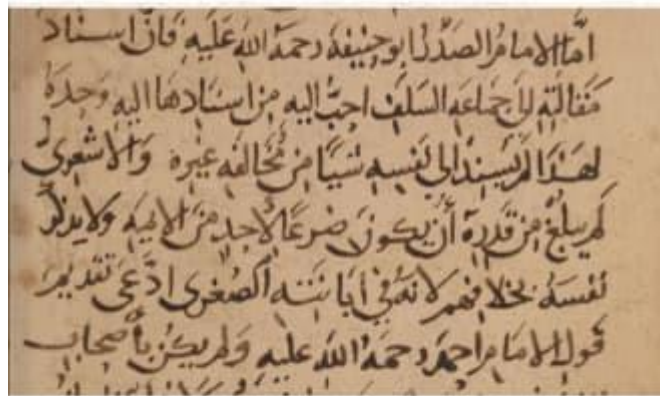 أما الامام الصدر ابو حنيفة رحمة الله عليه فان اسناد
مقالته الى جماعة السلف احب اليه من اسنادها اليه وحده
لهذا لم يسند الى نفسه شيئا من مخالفه غيره والاشعري
لم يبلغ من قدره أن يكون ضرعا لأحد من الايمه ولا يذكر
نفسه بخلافهم لانه في ابانته الصغرى ادعى تقديم
قول الامام احمد رحمة الله عليه ولم يكن بأصحاب